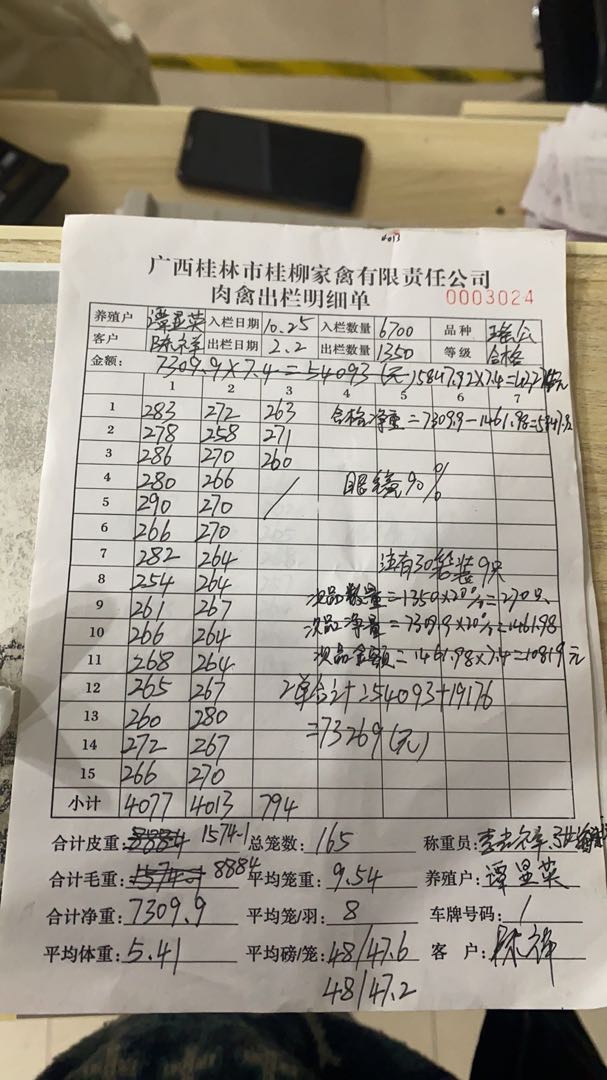 4013
广西桂林市桂柳家禽有限责任公司
肉禽出栏明细单
0003024
养殖户 谭显英 入栏日期 10.25 入栏数量 6700 品种 瑶公
客户 陈祥 出栏日期 2.2 出栏数量 1350 等级 合格
金额: 7309.9×7.4=54093(元) 5847.92×7.4=
1 2 3 4 5 6 7
1 283 272 263 合格净重=7309.9-1461.98=5847.92
2 278 258 271
3 286 270 260
4 280 266 / 眼 90%
5 290 270
6 266 270
7 282 264 注有30笼装9只
8 254 264
9 261 267 次品数量=1350×20%=270只
10 266 264 次品净重=7309.9×20%=1461.98
11 268 264 次品金额=1461.98×7.4=10819元
12 265 267 2单合计254093+19176
13 260 280 =73269(元)
14 272 267
15 266 270
小计 4077 4013 794
合计皮重: 1574.1 总笼数: 165 称重员:
合计毛重: 8884 平均笼重: 9.54 养殖户: 谭显英
合计净重: 7309.9 平均笼/羽: 8 车牌号码: /
平均体重: 5.41 平均磅/笼: 48/47.6 客 户: 陈祥
48/47.2